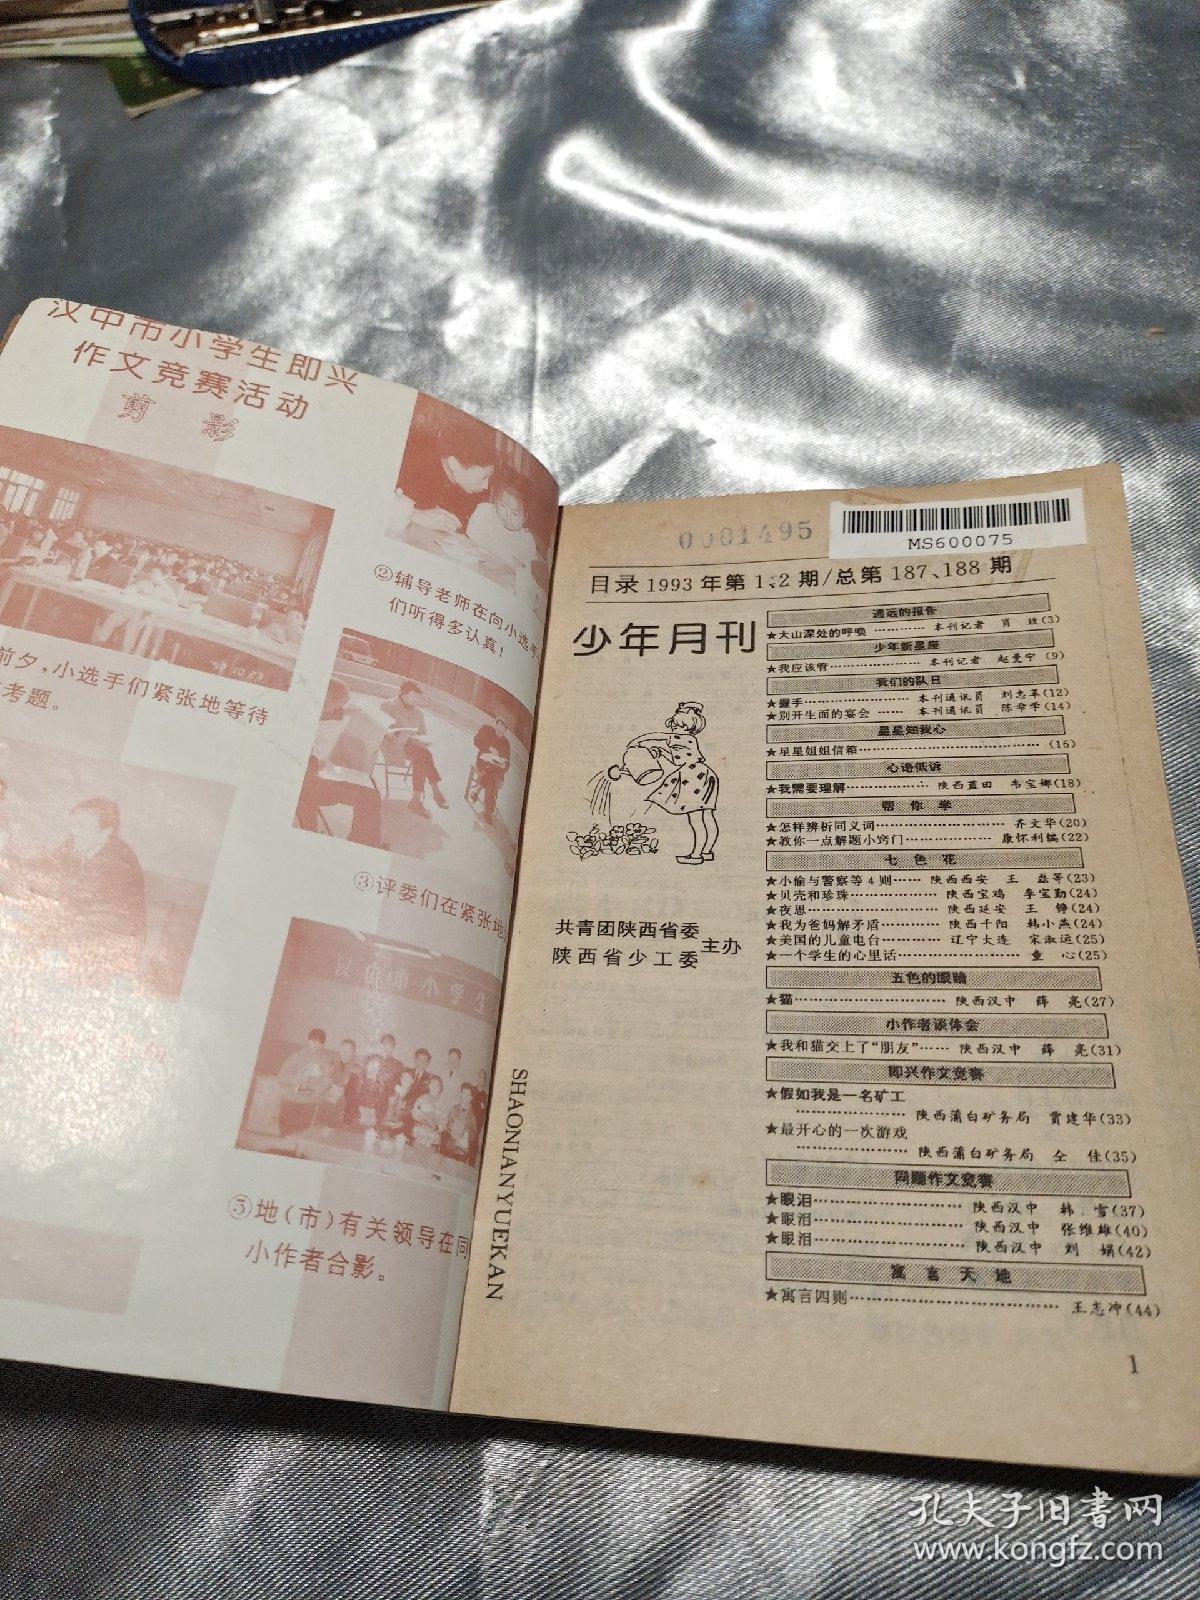 汉中市小学生即兴
作文竞赛活动
剪 影
②辅导老师在向小选手
们听得多认真!
'92.10.23
前夕,小选手们紧张地等待
考题。
③评委们在紧张地
小学生
⑤地(市)有关领导在同
小作者合影。
0001495
MS600075
目录 1993年第1、2期/总第187、188期
少年月刊
共青团陕西省委
陕西省少工委
主办
SHAONIANYUEKAN
遥远的报告
★大山深处的呼唤………本刊记者 肖 玫(3)
少年新星座
★我应该管………本刊记者 赵曼宁(9)
我们的队日
★握手………本刊通讯员 刘志革(12)
★别开生面的宴会……本刊通讯员 陈希学(14)
星星知我心
★星星姐姐信箱………(16)
心语低诉
★我需要理解………陕西蓝田 韦宝娜(18)
帮你学
★怎样辨析同义词………齐文华(20)
★教你一点解题小窍门………康怀利编(22)
七色花
★小偷与警察等4则……陕西西安 王 磊等(23)
★贝壳和珍珠………陕西宝鸡 李宝勤(24)
★夜思………陕西延安 王 铮(24)
★我为爸妈解矛盾………陕西千阳 韩小燕(24)
★美国的儿童电台………辽宁大连 宋淑运(25)
★一个学生的心里话………童 心(25)
五色的眼睛
★猫………陕西汉中 薛 亮(27)
小作者谈体会
★我和猫交上了“朋友”……陕西汉中 薛 亮(31)
即兴作文竞赛
★假如我是一名矿工
………陕西蒲白矿务局 贾建华(33)
★最开心的一次游戏
………陕西蒲白矿务局 仝 佳(35)
同题作文竞赛
★眼泪………陕西汉中 韩 雪(37)
★眼泪………陕西汉中 张维雄(40)
★眼泪………陕西汉中 刘 娟(42)
寓言天地
★寓言四则………王志冲(44)
1
孔夫子旧书网
www.kongfz.com